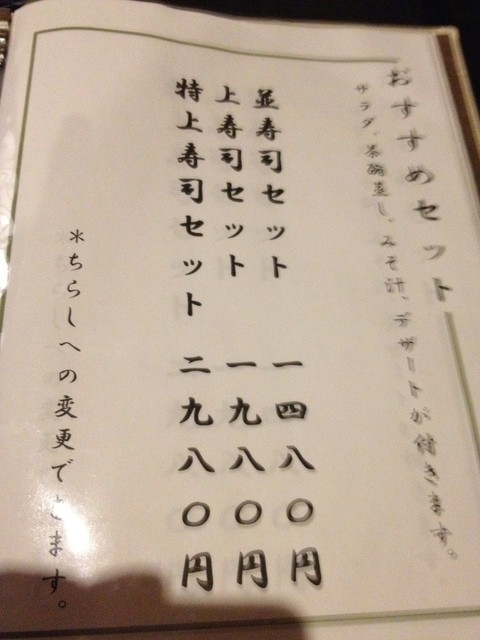 おすすめセット
サラダ、茶碗蒸し、みそ汁、デザートが付きます。
並寿司セット 一四八〇円
上寿司セット 一九八〇円
特上寿司セット 二九八〇円
＊ちらしへの変更できます。